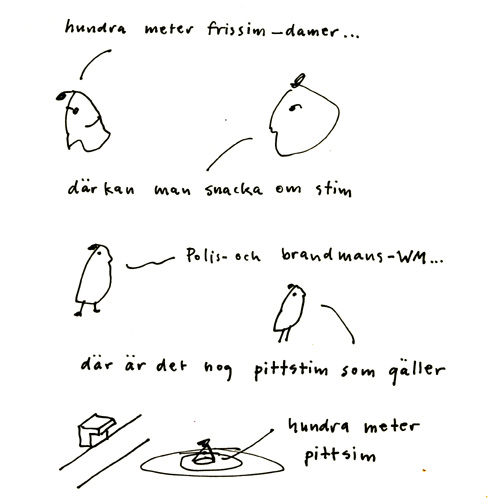 hundra meter frissim-damer...
där kan man snacka om stim
Polis- och brandmans-WM...
där är det nog pittstim som gäller
hundra meter
pittsim